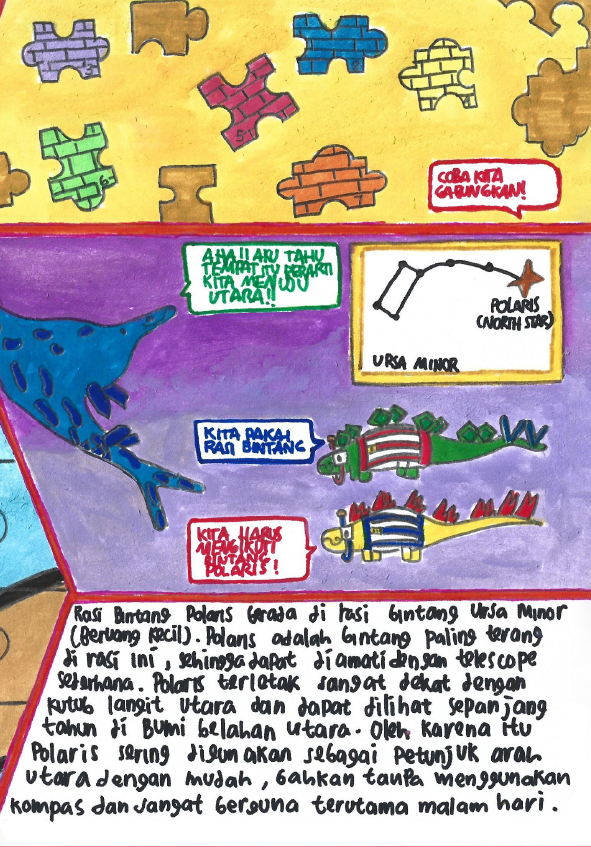 5
5
6
7
COBA KITA
GABUNGKAN!
AHA!! AKU TAHU
TEMPAT ITU BERARTI
KITA MENUJU
UTARA!!
POLARIS
(NORTH STAR)
URSA MINOR
KITA PAKAI
RASI BINTANG
KITA HARUS
MENGIKUTI
BINTANG
POLARIS!
Rasi Bintang Polaris berada di rasi bintang Ursa Minor
(Beruang Kecil). Polaris adalah bintang paling terang
di rasi ini, sehingga dapat diamati dengan telescope
sederhana. Polaris terletak sangat dekat dengan
kutub langit utara dan dapat dilihat sepanjang
tahun di Bumi belahan utara. Oleh karena itu
Polaris sering digunakan sebagai petunjuk arah
utara dengan mudah, bahkan tanpa menggunakan
kompas dan sangat berguna terutama malam hari.